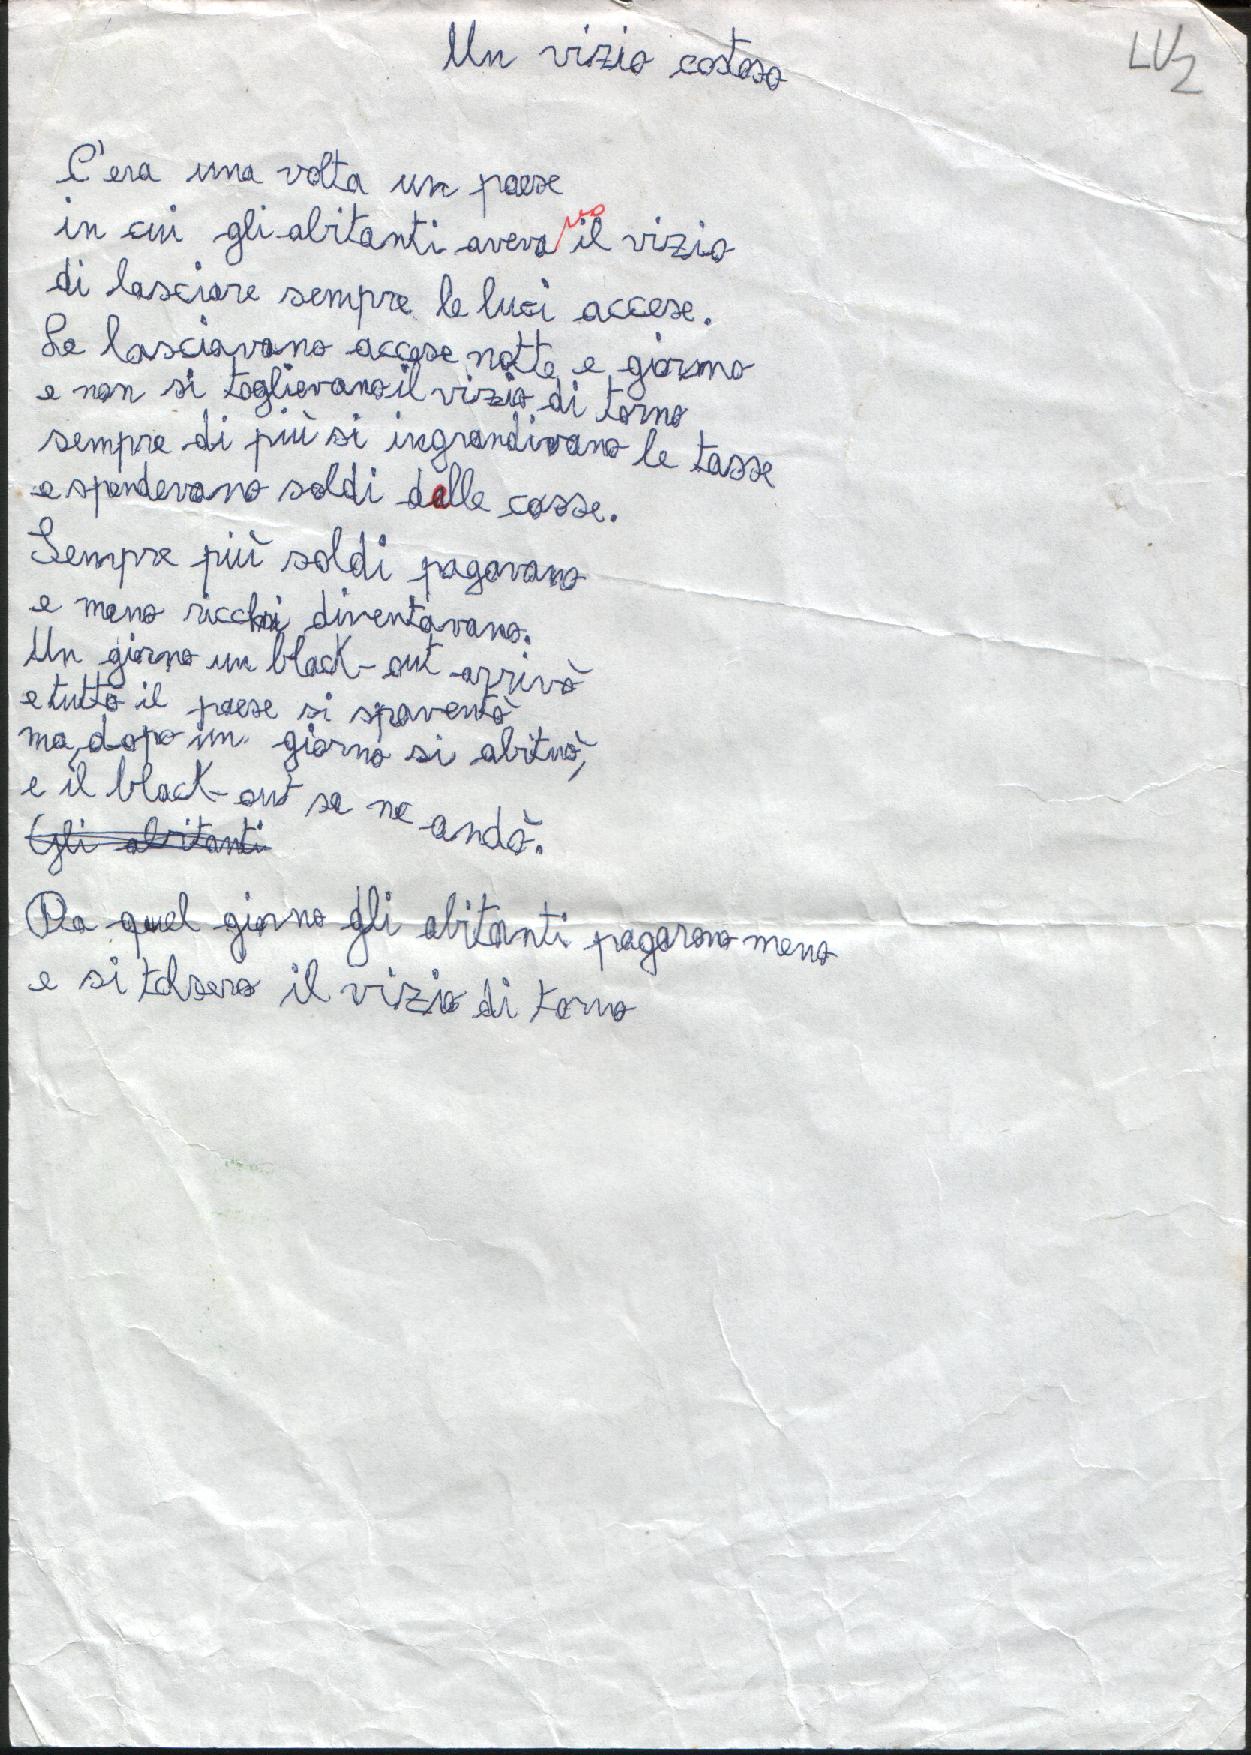 Un vizio costoso
LU2
C'era una volta un paese
in cui gli abitanti aveva no il vizio
di lasciare sempre le luci accese.
Le lasciavano accese notte e giorno
e non si toglievano il vizio di torno
sempre di più si ingrandivano le tasse
e spendevano soldi dalle casse.
Sempre più soldi pagavano
e meno ricchi diventavano.
Un giorno un black-out arrivò
e tutto il paese si spaventò
ma, dopo un giorno si abituò,
e il black-out se ne andò.
Gli abitanti
Da quel giorno gli abitanti pagarono meno
e si tolsero il vizio di torno